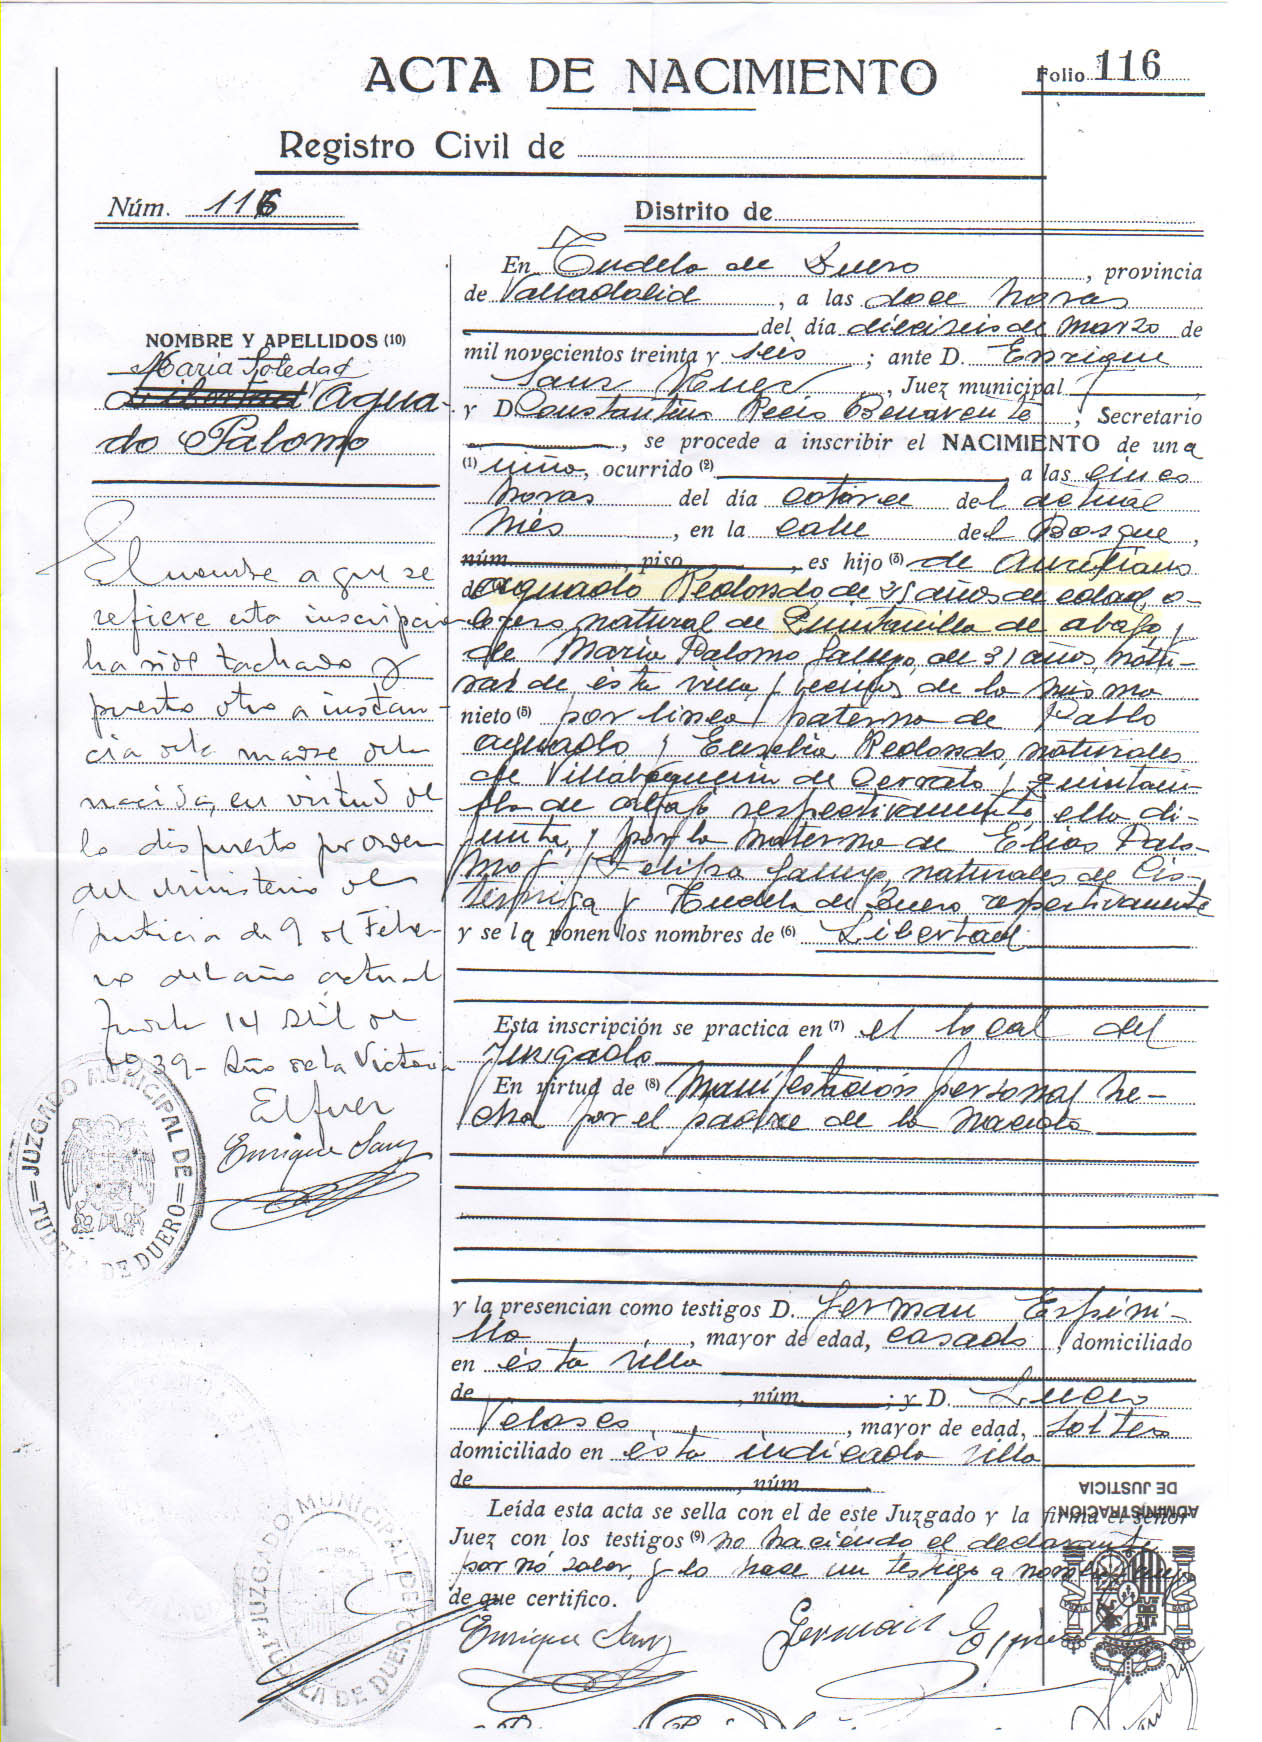 ACTA DE NACIMIENTO
Folio 116
Registro Civil de
Núm. 116
Distrito de
NOMBRE Y APELLIDOS (10)
Maria Soledad
Libertad Agua-
do Palomo
El nombre a que se
refiere esta inscripción
ha sido tachado y
puesto otro a instan-
cia de la madre de la
nacida, en virtud de
lo dispuesto por orden
del Ministerio de
Justicia de 9 de Febre-
ro del año actual
14 Abril de
1939 - Año de la Victoria
El Juez
Enrique Sanz
JUZGADO MUNICIPAL DE
TUDELA DE DUERO
En Tudela de Duero, provincia
de Valladolid, a las doce horas
del día dieciseis de Marzo de
mil novecientos treinta y seis; ante D. Enrique
Sanz, Juez municipal
y D. Constantino Recio Benavente, Secretario
, se procede a inscribir el NACIMIENTO de una
(1) niña, ocurrido (2) a las cinco
horas del día catorce del actual
mes, en la calle del Bosque,
núm., piso, es hijo (3) de Aureliano
de Aguado Redondo, de 35 años de edad, o-
brero natural de Quintanilla de abajo y
de Maria Palomo Gallego, de 31 años, natu-
ral de ésta villa y vecinos de la misma
nieto (5) por linea paterna de Pablo
Aguado y Eusebia Redondo, naturales
de Villabaquerin de Cerrato y Quintani-
lla de abajo respectivamente, ella di-
funta, y por la materna de Elias Palo-
mo y Felipa Gallego, naturales de
y Tudela de Duero, respectivamente
y se la ponen los nombres de (6) Libertad
Esta inscripción se practica en (7) el local del
Juzgado
En virtud de (8) manifestación personal he-
cha por el padre de la nacida
y la presencian como testigos D. German Espini-
lla, mayor de edad, casado, domiciliado
en ésta villa
de, núm.; y D. Lucio
Velasco, mayor de edad, soltero
domiciliado en ésta indicada villa
de, núm.
ADMINISTRACION
DE JUSTICIA
Leída esta acta se sella con el de este Juzgado y la firma el señor
Juez con los testigos (9) no haciendo el declarante
por nó saber, y lo hace un testigo a
de que certifico.
Enrique Sanz
German
JUZGADO MUNICIPAL DE
TUDELA DE DUERO